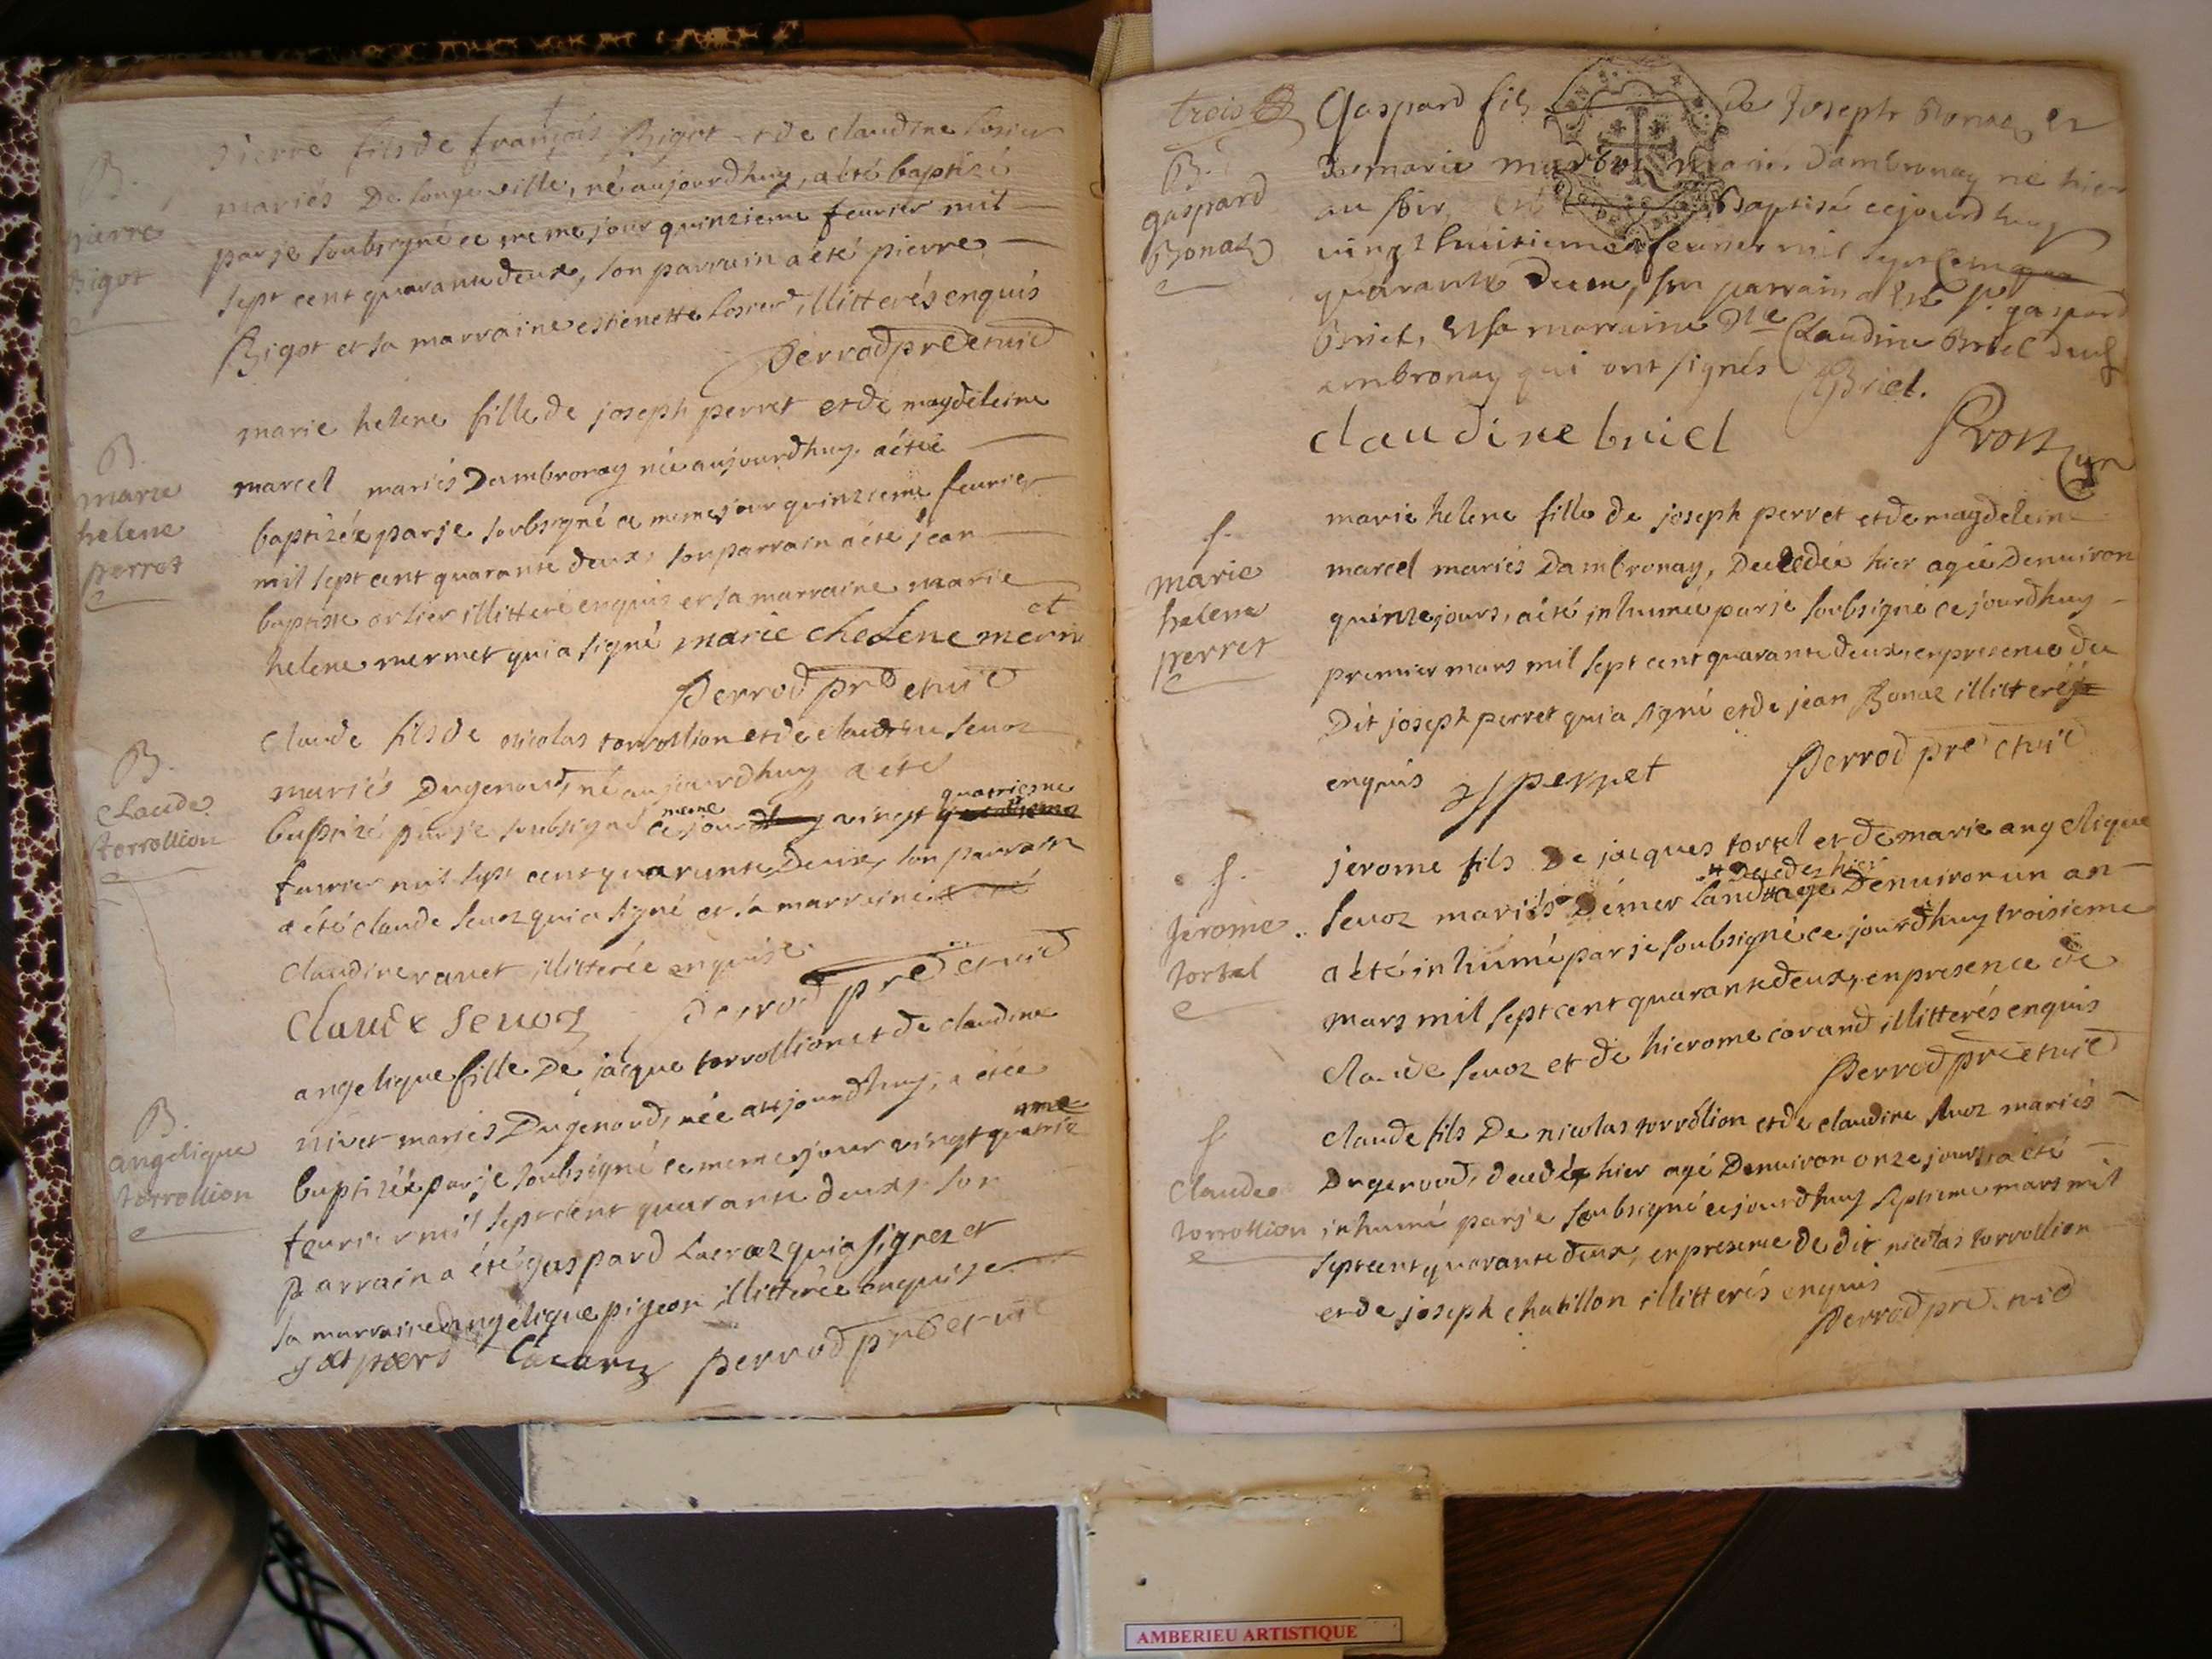 B.
pierre
Bigot
pierre fils de françois Bigot et de claudine losier
mariés De longeville, né aujourdhuy, a été baptizé
par je soubsigné ce meme jour quinzieme feurier mil
sept cent quarante deux, son parrain a été pierre
Bigot et sa marraine estienette losier illitterés enquis
Perrod pre et vic
B.
marie
helene
perret
marie helene fille de joseph perret et de magdeleine
marcel mariés Dambronay née aujourdhuy, a étée
baptizée par je soubsigné ce meme jour quinzieme feurier
mil sept cent quarante deux, son parrain a été jean
baptiste orsier illitteré enquis et sa marraine marie
helene mermet qui a signé marie chelene merm
et
Perrod pre et vic
B.
Claude
torrollion
Claude fils de nicolas torrollion et de claudine seuoz
mariés Dugenoud, né aujourdhuy a été
baptizé par je soubsigné ce meme jour vingt quatriesme
feurier mil sept cent quarante Deux, son parrain
a été claude seuoz qui a signé et sa marraine
Claudine rauet illitterée enquise
Claude Seuoz Perrod pre et vic
B.
angelique
torrollion
angelique fille De jacque torrollion et de claudine
niuet mariés Dugenoud, née aujourdhuy, a étée
baptizée par je soubsigné ce meme jour vingt quatrie
me
feurier mil sept cent quarante deux, son
parrain a été gaspard Lacraz qui a signez et
sa marraine angelique pigeon illitterée enquise
gaspard Lacaraz perrod pre et vic
trois
B.
gaspard
Bonaz
Gaspard fils de Joseph Bonaz et
De marie mariés Dambronay ne hier
au soir, Baptisé cejourdhuy
vingt huitieme feurier mil sept cent
quarante Deux, son parrain a été Sr. gaspard
Briel, et sa marraine Dlle Claudine Briel dud
ambronay qui ont signés Briel.
claudine briel
f.
marie
helene
perret
marie helene fille de joseph perret et de magdeleine
marcel mariés Dambronay, Decedée hier agée Denuiron
quinze jours, a été inhumée par je soubsigné ce jourdhuy
premier mars mil sept cent quarante deux, en presence du
Dit joseph perret qui a signé et de jean Bonaz illitteré
enquis J perret Perrod pre et vic
f.
Jerome
tortel
jerome fils De jacques tortel et de marie angelique
Decedez hier
seuoz mariés Démerland agé Denuiron un an
a été inhumé par je soubsigné ce jourdhuy troisieme
mars mil sept cent quarante deux, en presence de
Claude seuoz et de hierome corand illitterés enquis
Perrod pre et vic
f
Claude
torrollion
claude fils De nicolas torrollion et de claudine seuoz mariés
Dugenoud, decedé hier agé Denuiron onze jours, a été
inhumé par je soubsigné ce jourdhuy septieme mars mil
sept cent quarante deux, en presence de dit nicolas torrollion
et de joseph chatillon illitterés enquis
Perrod pre et vic
AMBERIEU ARTISTIQUE